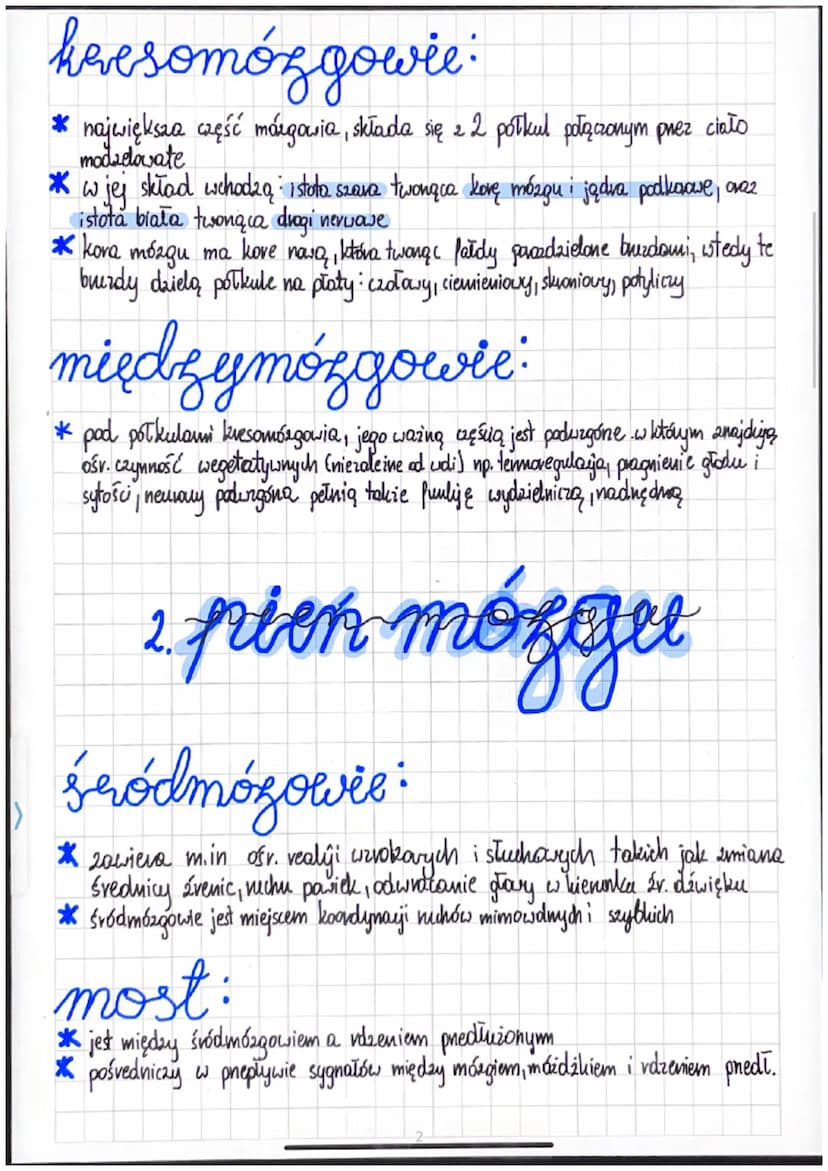 kresomózgowie:
* największa część mózgowia, składa się z 2 półkul połączonym przez ciało
modzelowate
* w jej skład wchodzą: istota szara tworząca korę mózgu i jądra podkorowe, oraz
istota biała tworząca drogi nerwowe
* kora mózgu ma kore nową, która tworząc fałdy porozdzielone bruzdami, wtedy te
bruzdy dzielą półkule na płaty: czołowy, ciemieniowy, skroniowy, potyliczy
międzymózgowie:
* pod półkulami kresomózgowia, jego ważną częścią jest podwzgórze w którym znajdują
ośr. czynność wegetatywnych (niezależne od woli) np. termoregulacja, pragnienie głodu i
sytości, neurony podwzgórza pełnią także funkcję wydzielniczą, nadrzędną
2. pień mózgu
śródmózowie:
* zawiera m.in ośr. reakcji wzrokowych i słuchowych takich jak zmiana
średnicy źrenic, ruchu powiek, odwracanie głowy w kierunku źr. dźwięku
* śródmózgowie jest miejscem koordynacji ruchów mimowolnych i szybkich
most:
* jest między śródmózgowiem a rdzeniem przedłużonym
* pośredniczy w przepływie sygnałów między mózgiem, móżdżkiem i rdzeniem przedł.
2